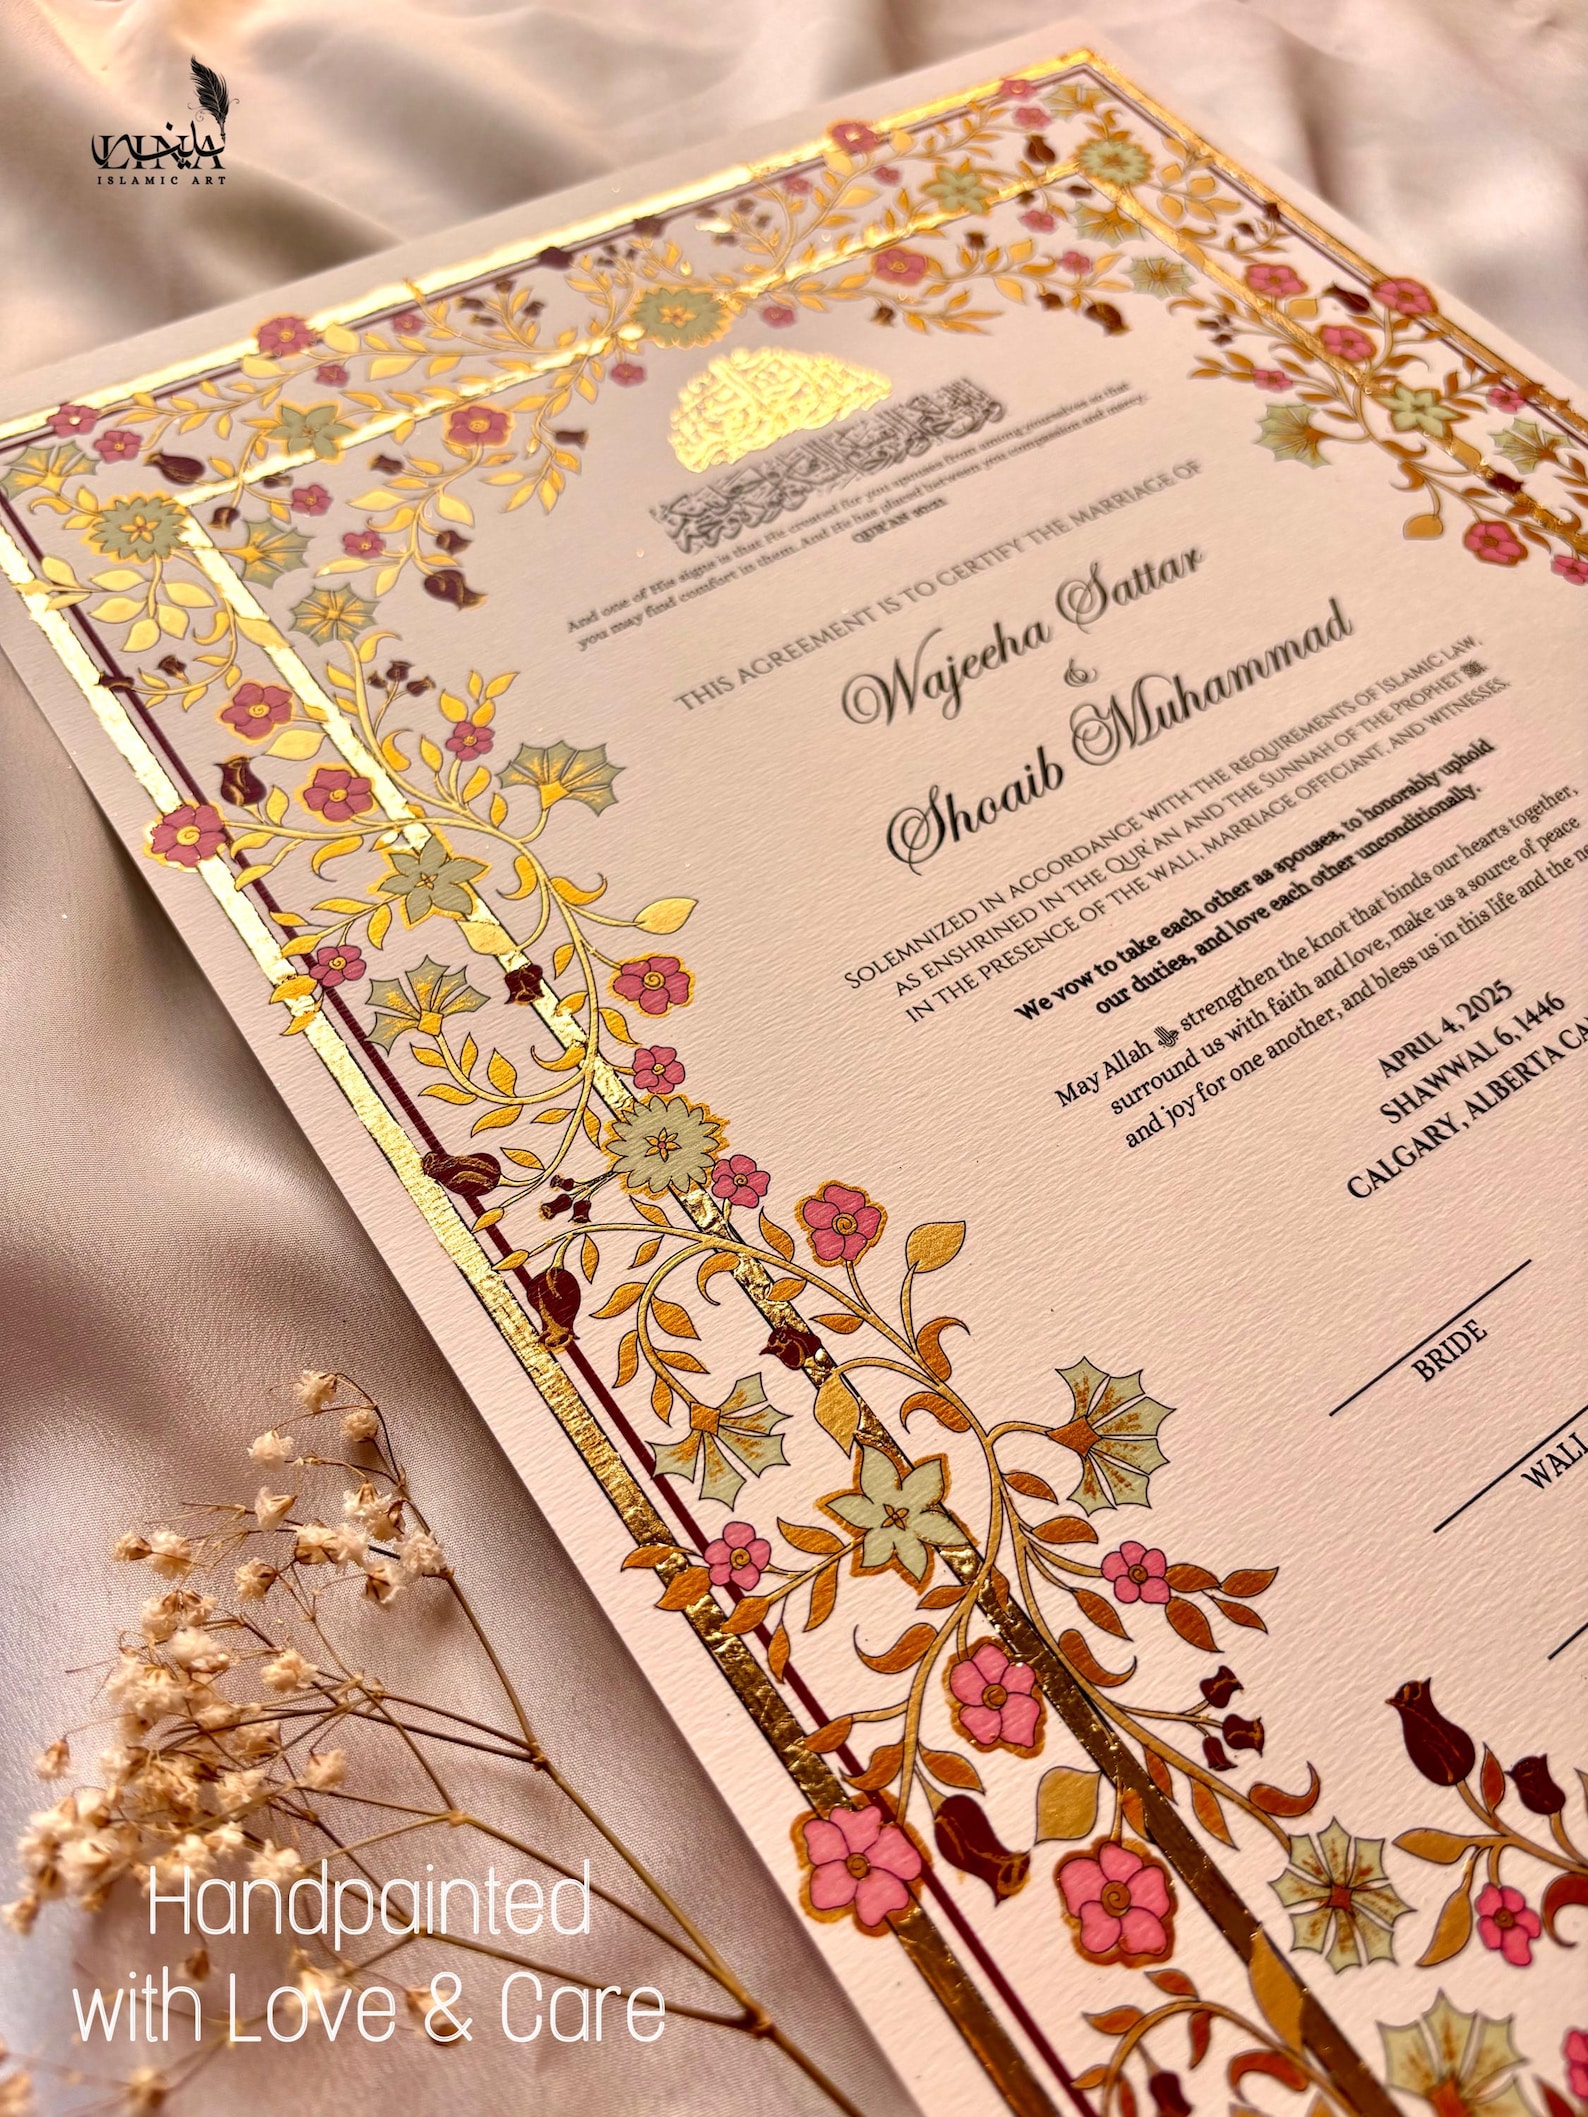 LINA
ISLAMIC ART
And one of His signs is that He created for you spouses from among yourselves so that
you may find comfort in them. And He has placed between you compassion and mercy.
QUR'AN 30:21
THIS AGREEMENT IS TO CERTIFY THE MARRIAGE OF
Wajeeha Sattar
&
Shoaib Muhammad
SOLEMNIZED IN ACCORDANCE WITH THE REQUIREMENTS OF ISLAMIC LAW,
AS ENSHRINED IN THE QUR'AN AND THE SUNNAH OF THE PROPHET ﷺ
IN THE PRESENCE OF THE WALI, MARRIAGE OFFICIANT, AND WITNESSES.
We vow to take each other as spouses, to honorably uphold
our duties, and love each other unconditionally.
May Allah strengthen the knot that binds our hearts together,
surround us with faith and love, make us a source of peace
and joy for one another, and bless us in this life and the
APRIL 4, 2025
SHAWWAL 6, 1446
CALGARY, ALBERTA
BRIDE
WALI
Handpainted
with Love & Care